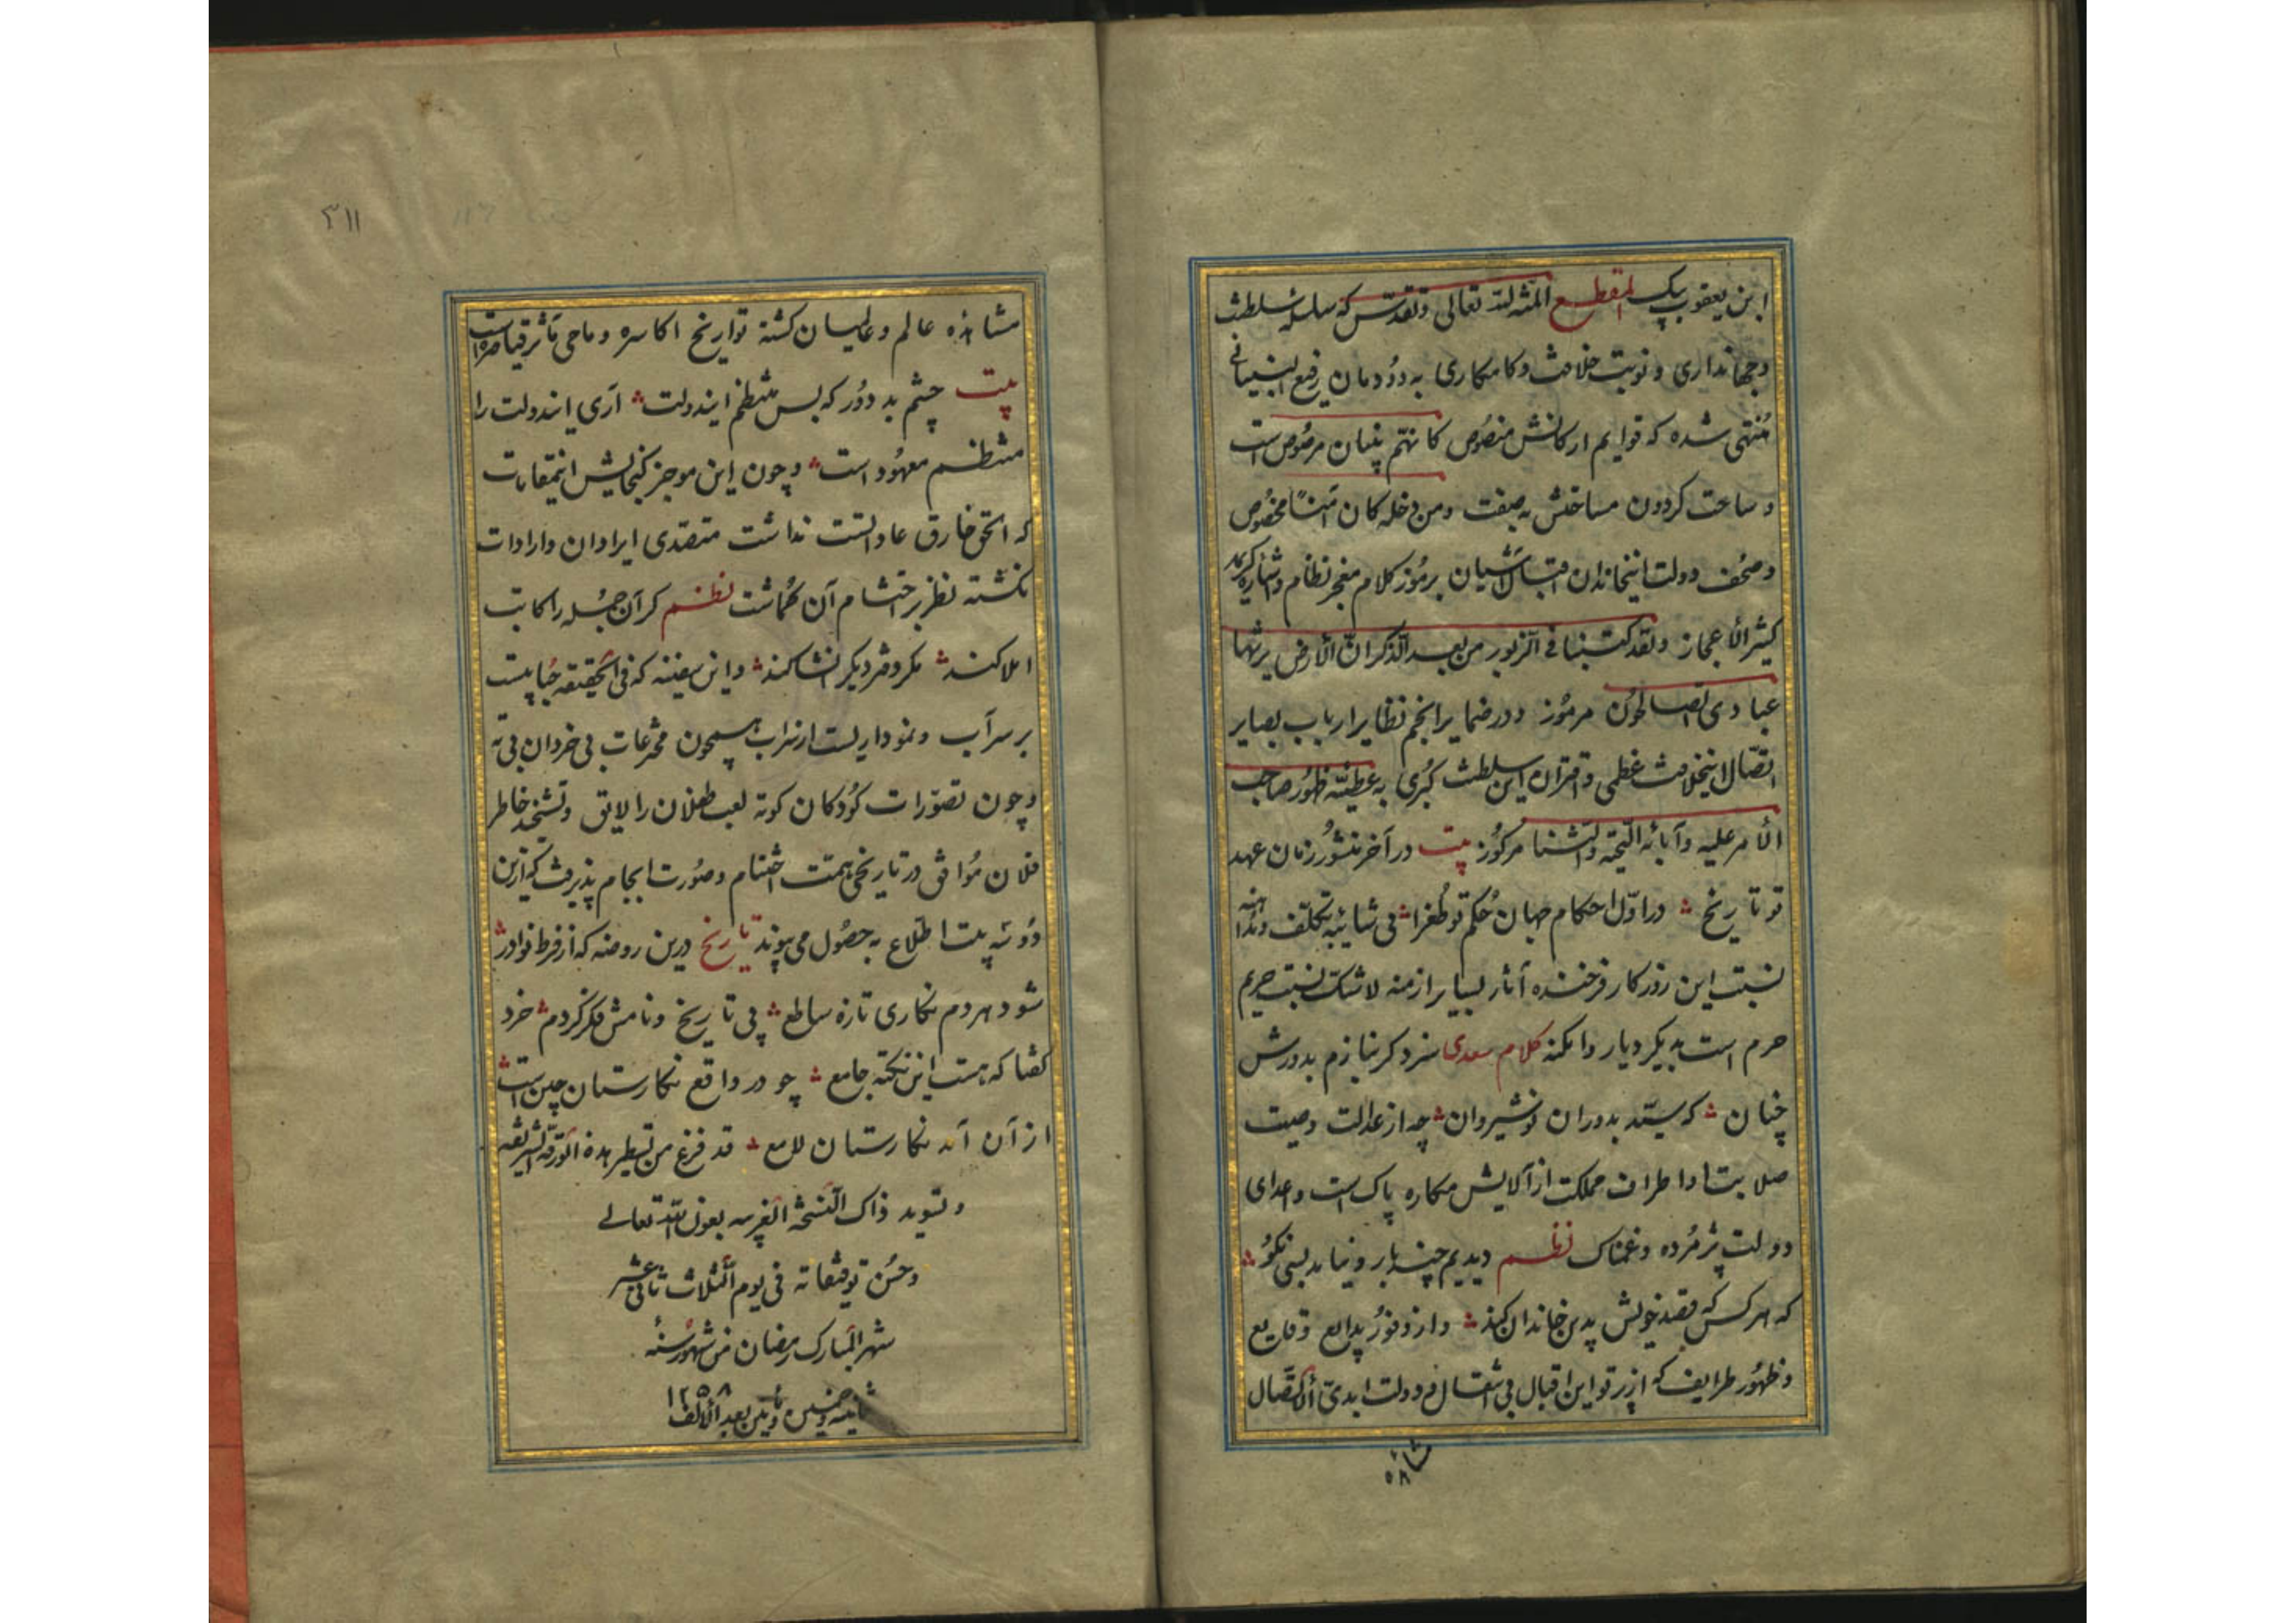 ابن یعقوب بیک المقطع المنّة لله تعالی وتقدّس که سلسله سلطنت
وجهانداری ونوبت خلافت وکامکاری به دودمان رفیع البنیانی
مُنتهی شده که قوایم ارکانش منصُوص کانهّم بنیان مرصُوص است
وساحت کردون مساحتش به صفت ومن دخله کان آمنًا مخصُوص
وصُحف دولت اینخاندان برمُوز کلام معجز نظام
کثیر الأعجاز ولقد کتبنا فی الزّبور من بعد الذّکر انّ الأرض یرثها
عبادی الصالحُون مرمُوز ودر ضمایر انجم نظایر ارباب بصایر
اتصّال اینخلافت عظمی واقتران این سلطنت کبُری به عطیّه ظهُور صاحب
الأمر علیه وآبائه التّحیّه والثّنا مرکُوز بیت در آخر منشُور زمان عهد
تو تاریخ در اوّل احکام جهان حُکم تو طغرا بی شائبه تکلّف
نسبت این روزکار فرخنده آثار بسایر ازمنه لاشکّ نسبت حریم
حرم است بدیکر دیار وامکنه کلام سعدی سزد کر بنازم بدورش
چنان که سیّد بدوران نوشیروان چه از عدالت وصیت
صلابت اطراف مملکت از آلایش مکاره پاک است واعدای
دولت پژمُرده وغمناک نظم دیدیم چند بار ونیامد بسی نکُو
که هر کس که قصد خویش بدین خاندان کند واز وفوُر بدایع وقایع
وظهُور طرایف که از پرتو این اقبال بی انتقال ودولت ابدیّ الأتّصال
مشا
۵۸
۳۱۱
مشاهده عالم وعالمیان کشته تواریخ اکاسره وماحی مآثر قیاصره است
بیت چشم بد دوُر که بس منتظم ایندولت آری ایندولت را
منتظم معهُود است وچون این موجز کنجایش اینمقامات
که الحق خارق عاداتست نداشت متصّدی ایراد آن وارادات
نکشته نظر بر اختتام آن کُماشت نظم کر آن جُمله را کاتب
املا کند مکر دفتر دیکر انشا کند واین سفینه که فی الحقیقه حُبابیست
بر سر آب ونموداریست از سراب همچون مخترعات بی خردان بی ته
وچون تصوّرات کوُدکان کوته لعب طفلان را لایق وتشحیذ خاطر
فلان مُوافق در تاریخی همت اختتام وصوُرت انجام پذیرفت که ازین
دوُ سه بیت اطلّاع به حصُول می پیوندد تاریخ درین روضه که از فرط نوادر
شود هر دم نکاری تازه ساطع پی تاریخ ونامش فکر کردم خرد
کفتا که هست این نکته جامع چو در واقع نکارستان چین است
از آن آمد نکارستان لامع قد فرغ من تسطیر هذه الورقة الشریفه
وتسوید ذاک النّسخة الغریبه بعون الله تعالی
وحُسن توفیقاته فی یوم الثّلاث ثانی عشر
شهر المبارک رمضان من شهُور سنهُ
ثمانیه وخمسین ومأتین بعد الألف ۱۲۵۸